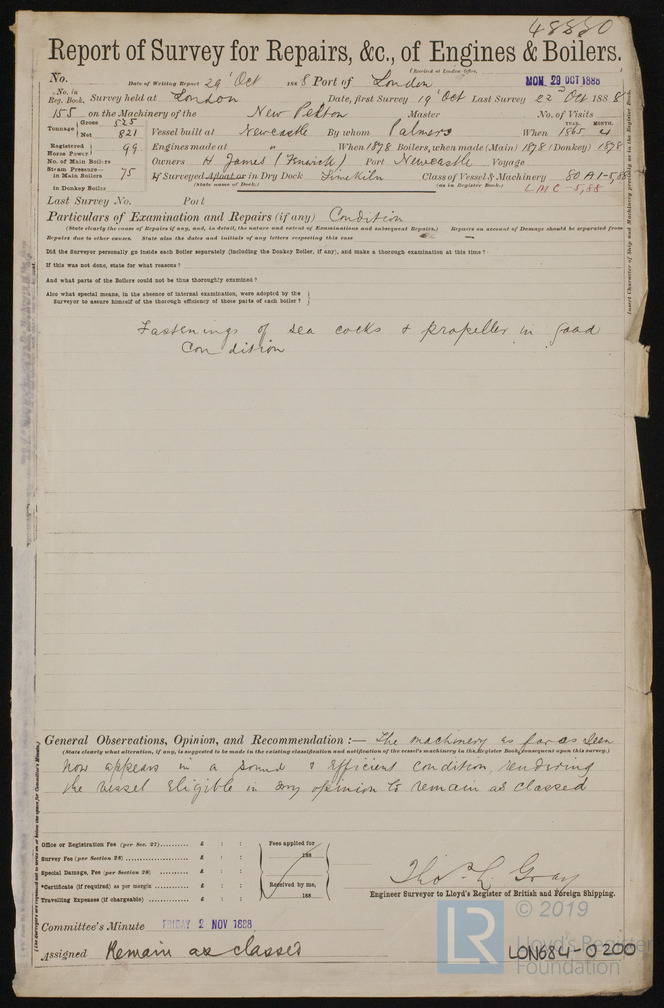 48880
Report of Survey for Repairs, &c., of Engines & Boilers.
(Received at London Office,
No. Date of Writing Report 29' Oct 1888 Port of London MON. 29 OCT 1888
No. in Reg. Book. Survey held at London Date, first Survey 19' Oct Last Survey 22nd Oct 1888
155 on the Machinery of the New Pelton Master No. of Visits
Tonnage Gross 525 Net 821 Vessel built at Newcastle By whom Palmers When YEAR. 1865 MONTH. 4
Registered Horse Power 99 Engines made at " When 1878 Boilers, when made (Main) 1878 (Donkey) 1878
No. of Main Boilers Owners H James (Fenwick) Port Newcastle Voyage
Steam Pressure— in Main Boilers 75 If Surveyed Afloat or in Dry Dock Limekiln Class of Vessel & Machinery 80 A1-5,88
(State name of Dock.) (as in Register Book.) LMC-5,88
in Donkey Boiler
Last Survey No. Port
Particulars of Examination and Repairs (if any) Condition
(State clearly the cause of Repairs if any, and, in detail, the nature and extent of Examinations and subsequent Repairs.) Repairs on account of Damage should be separated from
Repairs due to other causes. State also the dates and initials of any letters respecting this case
Did the Surveyor personally go inside each Boiler separately (including the Donkey Boiler, if any), and make a thorough examination at this time?
If this was not done, state for what reasons?
And what parts of the Boilers could not be thus thoroughly examined?
Also what special means, in the absence of internal examination, were adopted by the
Surveyor to assure himself of the thorough efficiency of those parts of each boiler?
Fastenings of sea cocks & propeller in good
condition
General Observations, Opinion, and Recommendation :— The machinery as far as seen
(State clearly what alteration, if any, is suggested to be made in the existing classification and notification of the vessel's machinery in the Register Book, consequent upon this survey.)
now appears in a sound & efficient condition, rendering
the vessel eligible in my opinion to remain as classed
Office or Registration Fee (per Sec. 27).......... £ : : Fees applied for
188
Survey Fee (per Section 28).................. £ : :
Special Damage Fee (per Section 28) .......... £ : :
*Certificate (if required) as per margin .......... £ : : Received by me,
Travelling Expenses (if chargeable) .......... £ : : 188
Thos. L. Gray
Engineer Surveyor to Lloyd's Register of British and Foreign Shipping.
Committee's Minute FRIDAY 2 NOV 1888
Assigned Remain as classed
LR © 2019
Lloyd's Register
Foundation
LON684-0200
Insert Character of Ship and Machinery precisely as in the Register Book.